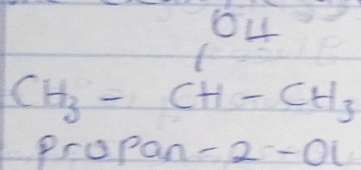 OH
CH₃ - CH - CH₃
Propan-2-OL